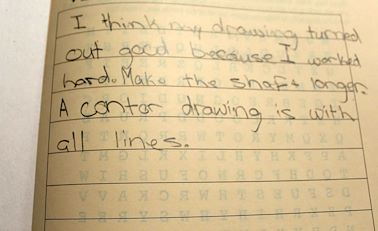 I think my drawing turned
out good because I worked
hard. Make the shaft longer.
A contor drawing is with
all lines.